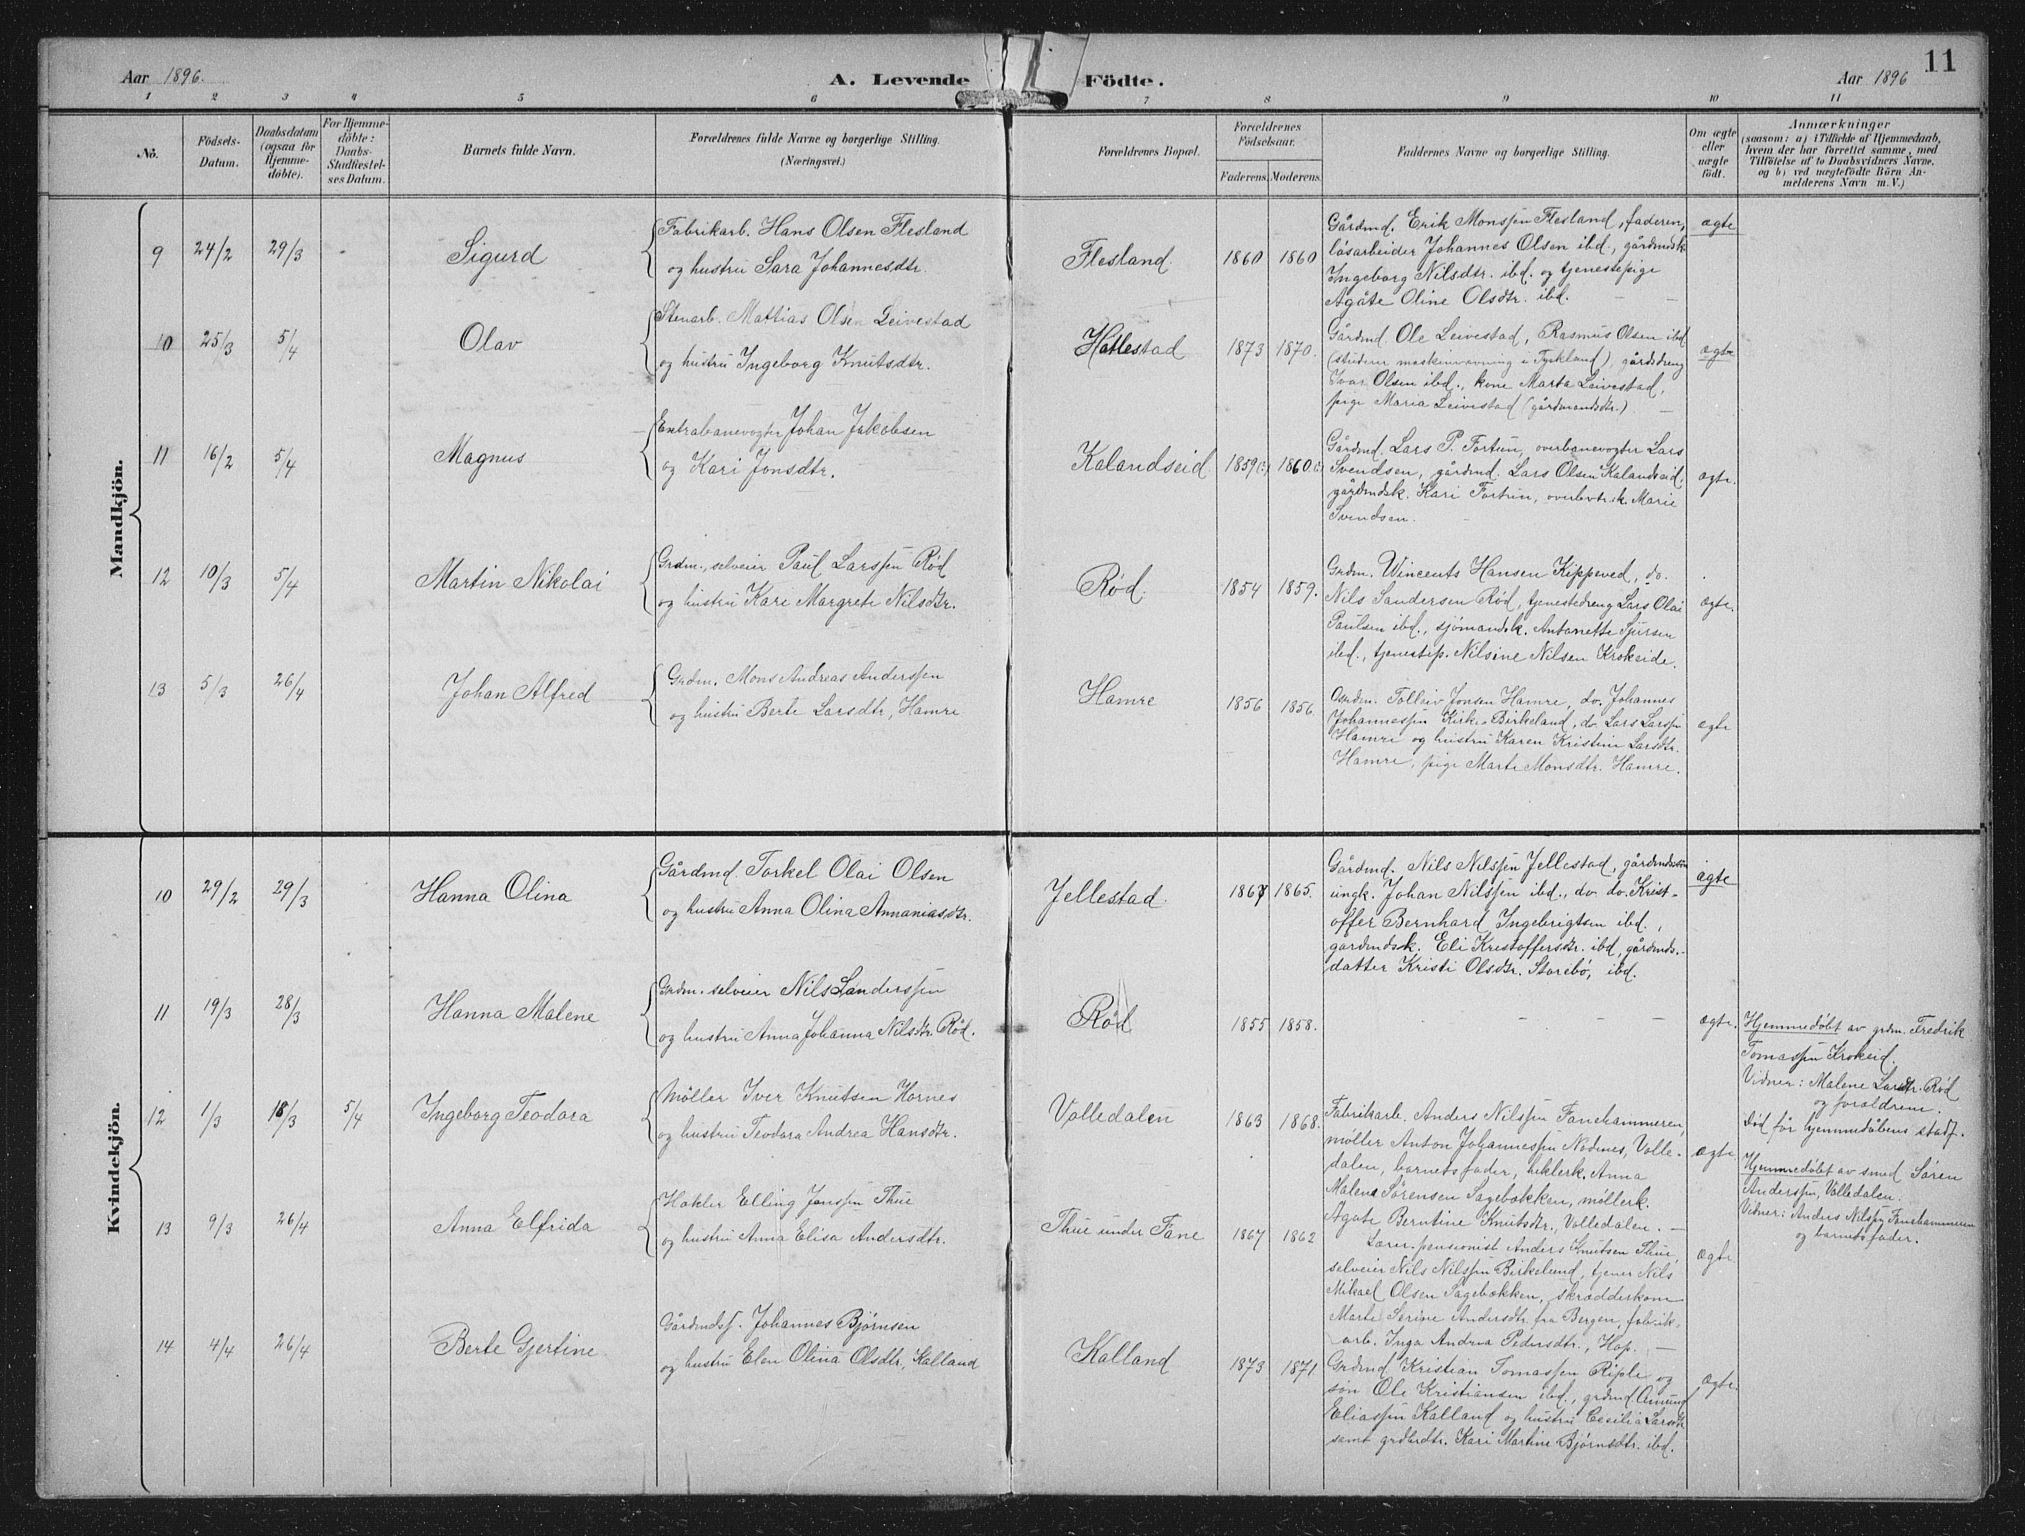 Aar 1896.
A. Levende Födte.
Aar 1896
11
1 2 3 4 5 6 7 8 9 10 11
No.
Födsels-
Datum.
Daabsdatum
(ogsaa for
Hjemme-
döbte).
For Hjemme-
döbte:
Daabs-
Stadfæstel-
ses Datum.
Barnets fulde Navn.
Forældrenes fulde Navne og borgerlige Stilling.
(Næringsvei.)
Forældrenes Bopæl.
Forældrenes
Födselsaar.
Faderens. Moderens.
Faddernes Navne og borgerlige Stilling.
Om ægte
eller
uægte
födt.
Anmærkninger
(saasom: a) i Tilfælde af Hjemmedaab,
hvem der har forrettet samme, med
Tilföielse af to Daabsvidners Navne,
og b) ved uægtefödte Börn An-
melderens Navn m. V.)
Mandkjön.
9 24/2 29/3 - Sigurd
Fabrikarb. Hans Olsen Flesland
og hustru Sara Johannesdtr.
Flesland. 1860 1860
Gårdmd. Erik Monssen Flesland, faderen,
løsarbeider Johannes Olsen ibd., gårdmdsk.
Ingeborg Nilsdtr. ibd. og tjenestepige
Agåte Oline Olsdtr. ibd.
ægte
10 25/3 5/4 Olav
Stenarb. Mattias Olsen Leivestad
og hustru Ingeborg Knutsdtr.
Hatlestad 1873 1870.
Gårdmd. Ole Leivestad, Rasmus Olsen ibd
(studerer maskinvævning i Tyskland), gårdsdreng
Ivar Olsen ibd., kone Marta Leivestad,
pige Maria Leivestad (gårdmandsdtr.)
ægte
11 16/2 5/4 Magnus
Extrabanevogter Johan Jakobsen
og Kari Jonsdtr.
Kalandseid 1859 1860
Gårdmd. Lars P. Fortun, overbanevogter Lars
Svendsen, gårdmd. Lars Olsen Kalandseid,
gårdmdsk. Kari Fortun, overbvtr.k. Marie
Svendsen.
ægte.
12 10/3 5/4 Martin Nikolai
Grdm., selveier Paul Larssen Rød
og hustru Kari Margrete Nilsdtr.
Rød. 1854 1859.
Grdm. Wincents Hansen Kippeved, do.
Nils Sandersen Rød, tjenestedreng Lars Olai
Paulsen ibd., sjømandsk. Antonette Sjursen
ibd., tjenestep. Nilsine Nilsen Krokeide.
ægte.
13 5/3 26/4 Johan Alfred
Grdm. Mons Andreas Anderssen
og hustru Berte Larsdtr, Hamre
Hamre 1856 1856.
Grdm. Folleiv Jonsen Hamre, do. Johannes
Johannessen Kirke-Birkeland, do. Lars Larssen
Hamre og hustru Karen Kristine Larsdtr.
Hamre, pige Marte Monsdtr. Hamre.
ægte
Kvindekjön.
10 29/2 29/3 Hanna Olina
Gårdmd. Torkel Olai Olsen
og hustru Anna Olina Annaniasdtr.
Jellestad. 1867 1865.
Gårdmd. Nils Nilssen Jellestad, gårdmdssøn
ungk. Johan Nilssen ibd., do do. Krist-
offer Bernhard Ingebrigtsen ibd.,
gårdmdsk. Eli Kristoffersdtr. ibd, gårdmds.-
datter Kristi Olsdtr. Storebø, ibd.
ægte
11 19/3 28/3 Hanna Malene
Grdm. selveier Nils Sanderssen
og hustru Anna Johanna Nilsdtr. Rød.
Rød 1855 1858.
- - - -
ægte.
Hjemmedøbt av grdm. Fredrik
Tomassen Krokeid.
Vidner: Malene Larsdtr. Rød
og forældrene.
Død før hjemmedåbens stadf.
12 1/3 18/3 5/4 Ingeborg Teodora
Møller Iver Knutsen Hornes
og hustru Teodora Andrea Hansdtr.
Volledalen 1863 1868.
Fabrikarb. Anders Nilssen Fanehammeren,
møller Anton Johannessen Nødtnes, Volle-
dalen, barnets fader, heklerk. Anna
Malene Sørensen Sagebækken, møllerk.
Agate Berntine Knutsdtr., Volledalen. -
ægte
Hjemmedøbt av smed Søren
Anderssen, Volledalen.
Vidner: Anders Nilssen Fanehammeren
og barnets fader.
13 9/3 26/4 Anna Elfrida
Hækler Elling Janssen Thue
og hustru Anna Elisa Andersdtr.
Thue under Fane 1867 1862
Lærer-pensionist Anders Knutsen Thue,
selveier Nils Nilssen Birkelund, tjener Nils
Mikael Olsen Sagebækken, skrædderkone
Marte Serine Andersdtr fra Bergen, fabrik-
arb. Inga Andrea Pedersdtr., Hop. -
ægte
14 4/4 26/4 Berte Gjertine
Gårdmdss. Johannes Bjørnsen
og hustru Elen Olina Olsdtr, Kalland
Kalland 1873 1871.
Grdmd. Kristian Tomassen Riple og
søn Ole Kristiansen ibd., grdmd Amund
Eliassen Kalland og hustru Cecilia Larsdtr
samt grdbrdtr. Kari Martine Bjørnsdtr. ibd.
ægte.